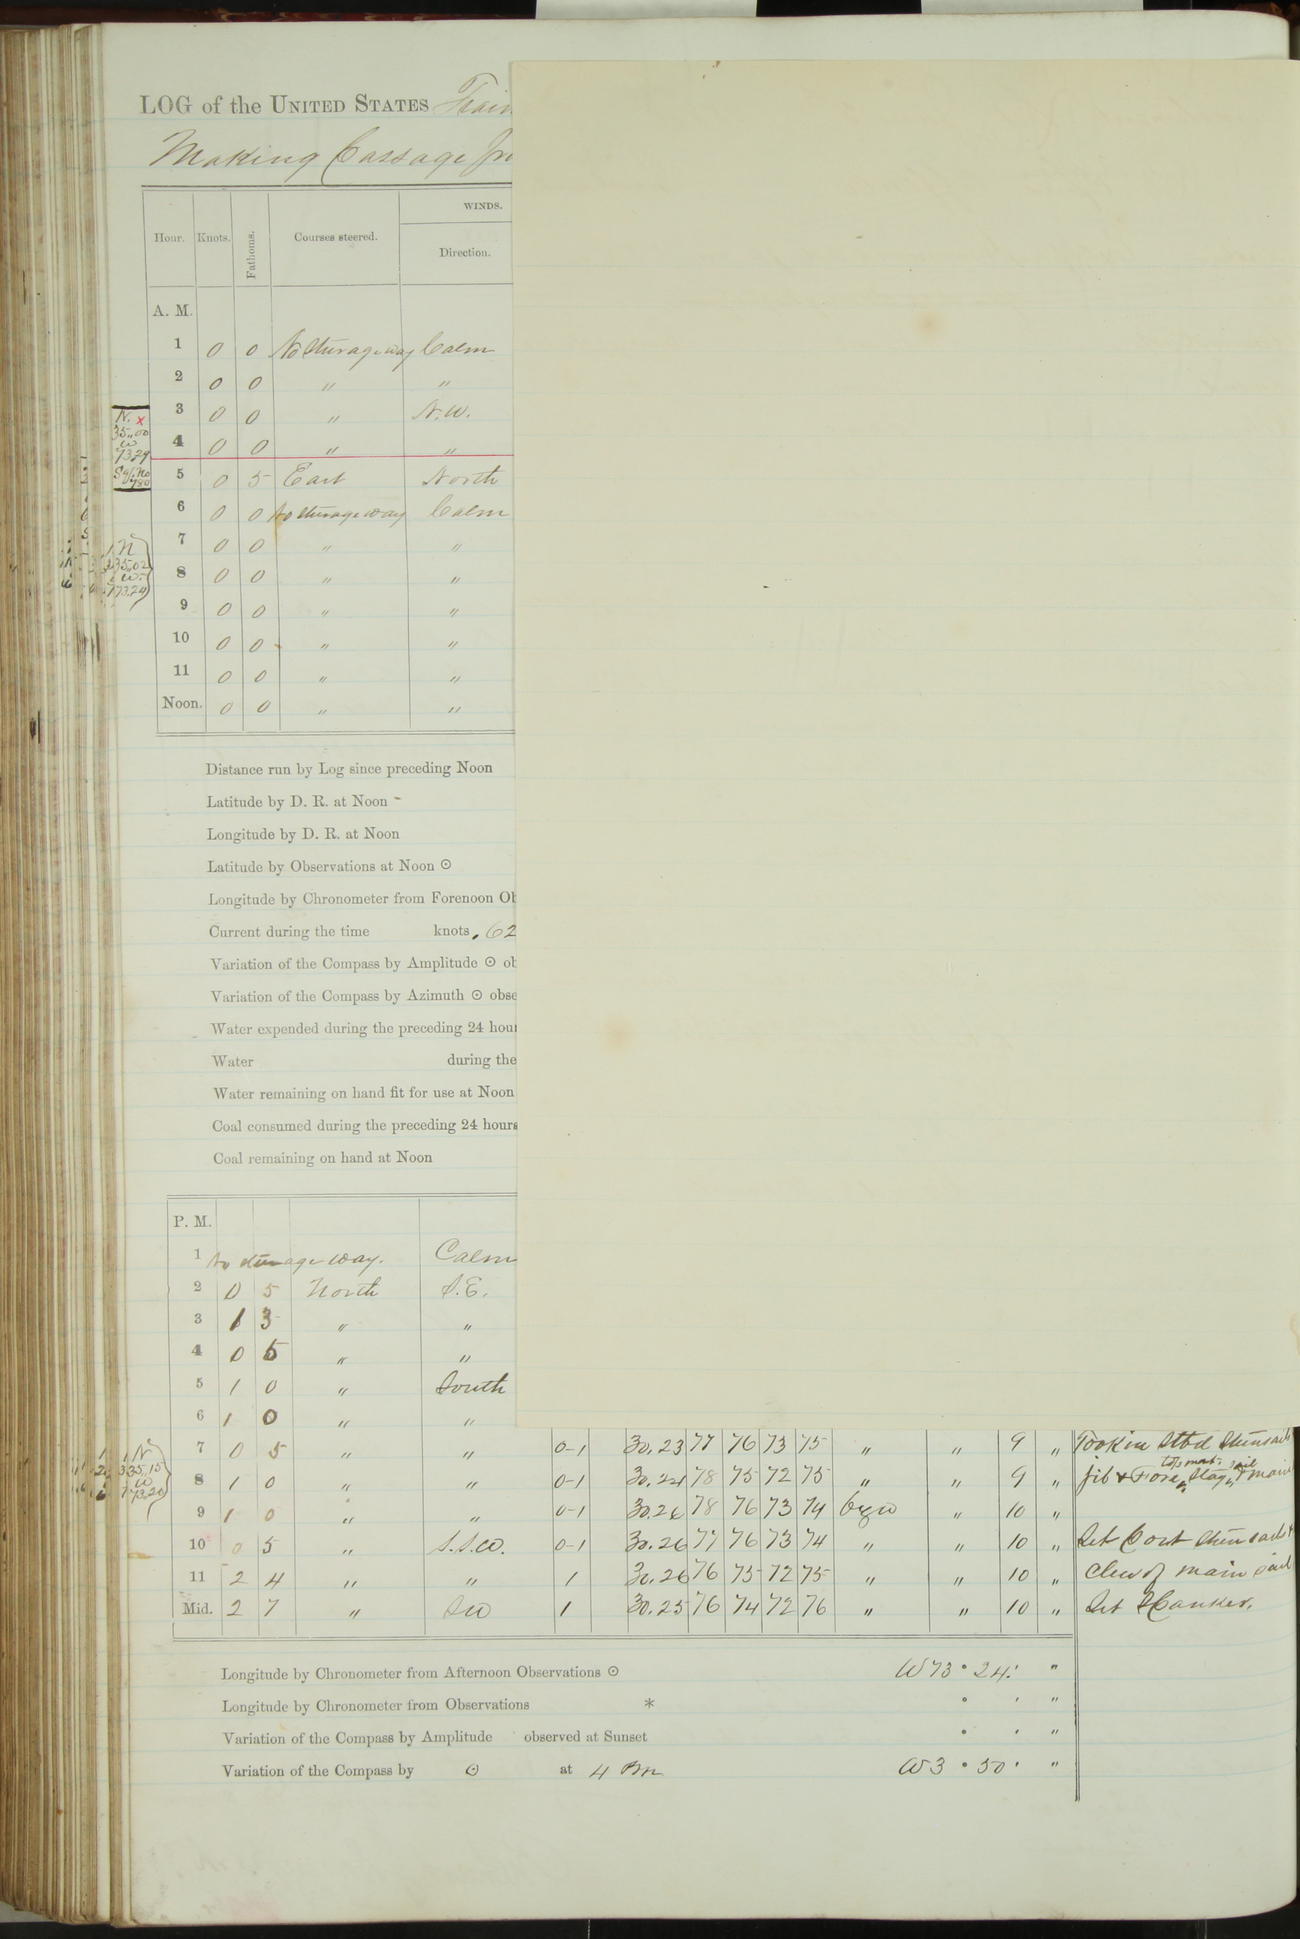 LOG of the UNITED STATES Train
Making Passage
WINDS.
Hour. Knots. Fathoms. Courses steered. Direction.
A. M.
1 0 0 No Sturageway Calm
2 0 0 " "
3 0 0 " N.W.
4 0 0 " "
5 0 5 East North
6 0 0 No sturageway Calm
7 0 0 " "
8 0 0 " "
9 0 0 " "
10 0 0 " "
11 0 0 " "
Noon. 0 0 " "
N. x
35,,00
W
73.24
N
35.02
W.
73.24
Distance run by Log since preceding Noon
Latitude by D. R. at Noon
Longitude by D. R. at Noon
Latitude by Observations at Noon ⊙
Longitude by Chronometer from Forenoon Ob
Current during the time knots .62
Variation of the Compass by Amplitude ⊙ ob
Variation of the Compass by Azimuth ⊙ obse
Water expended during the preceding 24 hour
Water during the
Water remaining on hand fit for use at Noon
Coal consumed during the preceding 24 hours
Coal remaining on hand at Noon
P. M.
1 No sturageway. Calm
2 0 5 North S.E.
3 1 3 " "
4 0 5 " "
5 1 0 " South
6 1 0 " "
7 0 5 " " 0-1 30.23 77 76 73 75 " " 9 " Took in Stbd Stunsails
8 1 0 " " 0-1 30.24 78 75 72 75 " " 9 " jib & Fore topmast Stay sail & main
9 1 0 " " 0-1 30.26 78 76 73 74 " 10 "
10 0 5 " S.S.W. 0-1 30.26 77 76 73 74 " " 10 " Set Port Stunsails &
11 2 4 " " 1 30.26 76 75 72 75 " " 10 " Clew of main sail
Mid. 2 7 " SW 1 30.25 76 74 72 76 " " 10 " Set Spanker.
N
35.15
W
73.20
Longitude by Chronometer from Afternoon Observations ⊙ W 73 ° 24 ' "
Longitude by Chronometer from Observations * ° ' "
Variation of the Compass by Amplitude observed at Sunset ° ' "
Variation of the Compass by ⊙ at 4 Pm W 3 ° 50 ' "